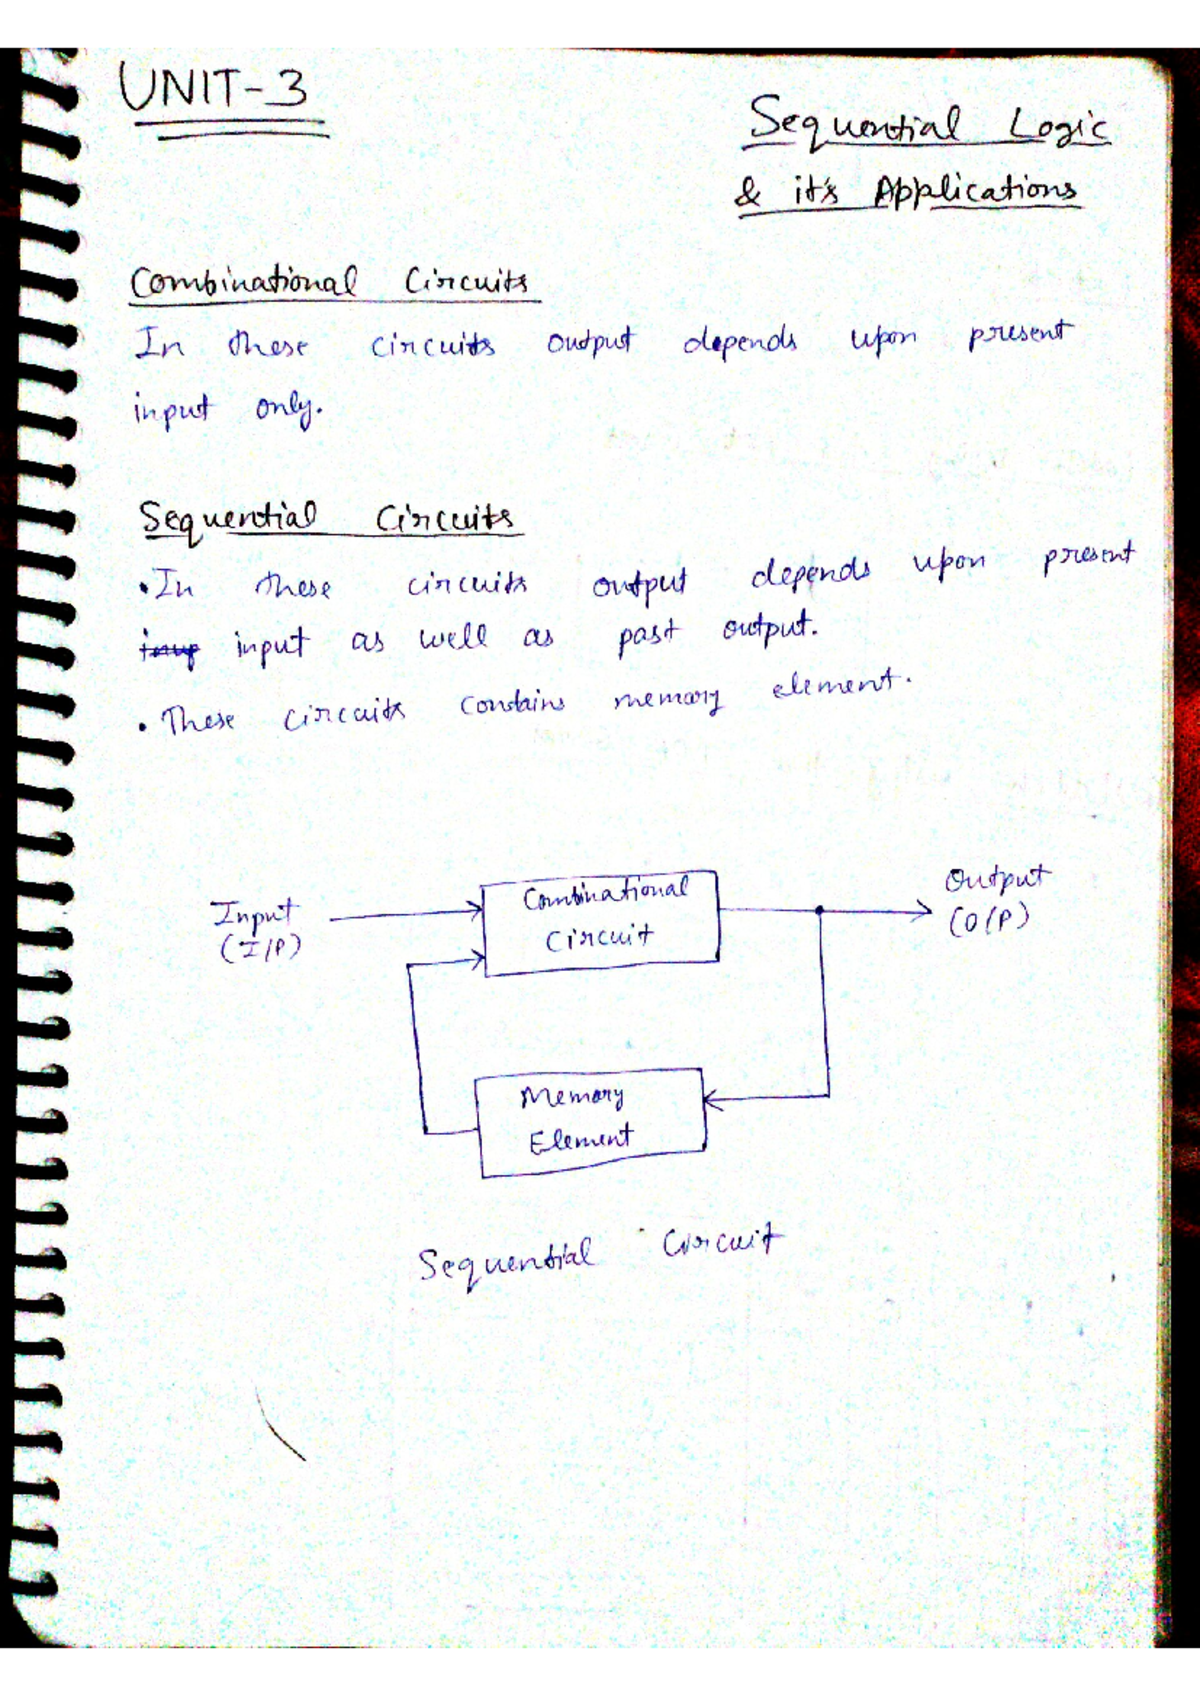 UNIT-3
Sequential Logic
& it's Applications
Combinational Circuits
In these circuits output depends upon present
input only.
Sequential Circuits
•In these circuits output depends upon present
inup input as well as past output.
• These circuits contains memory element.
Input
(I/P)
Combinational
Circuit
Output
(O/P)
Memory
Element
Sequential Circuit